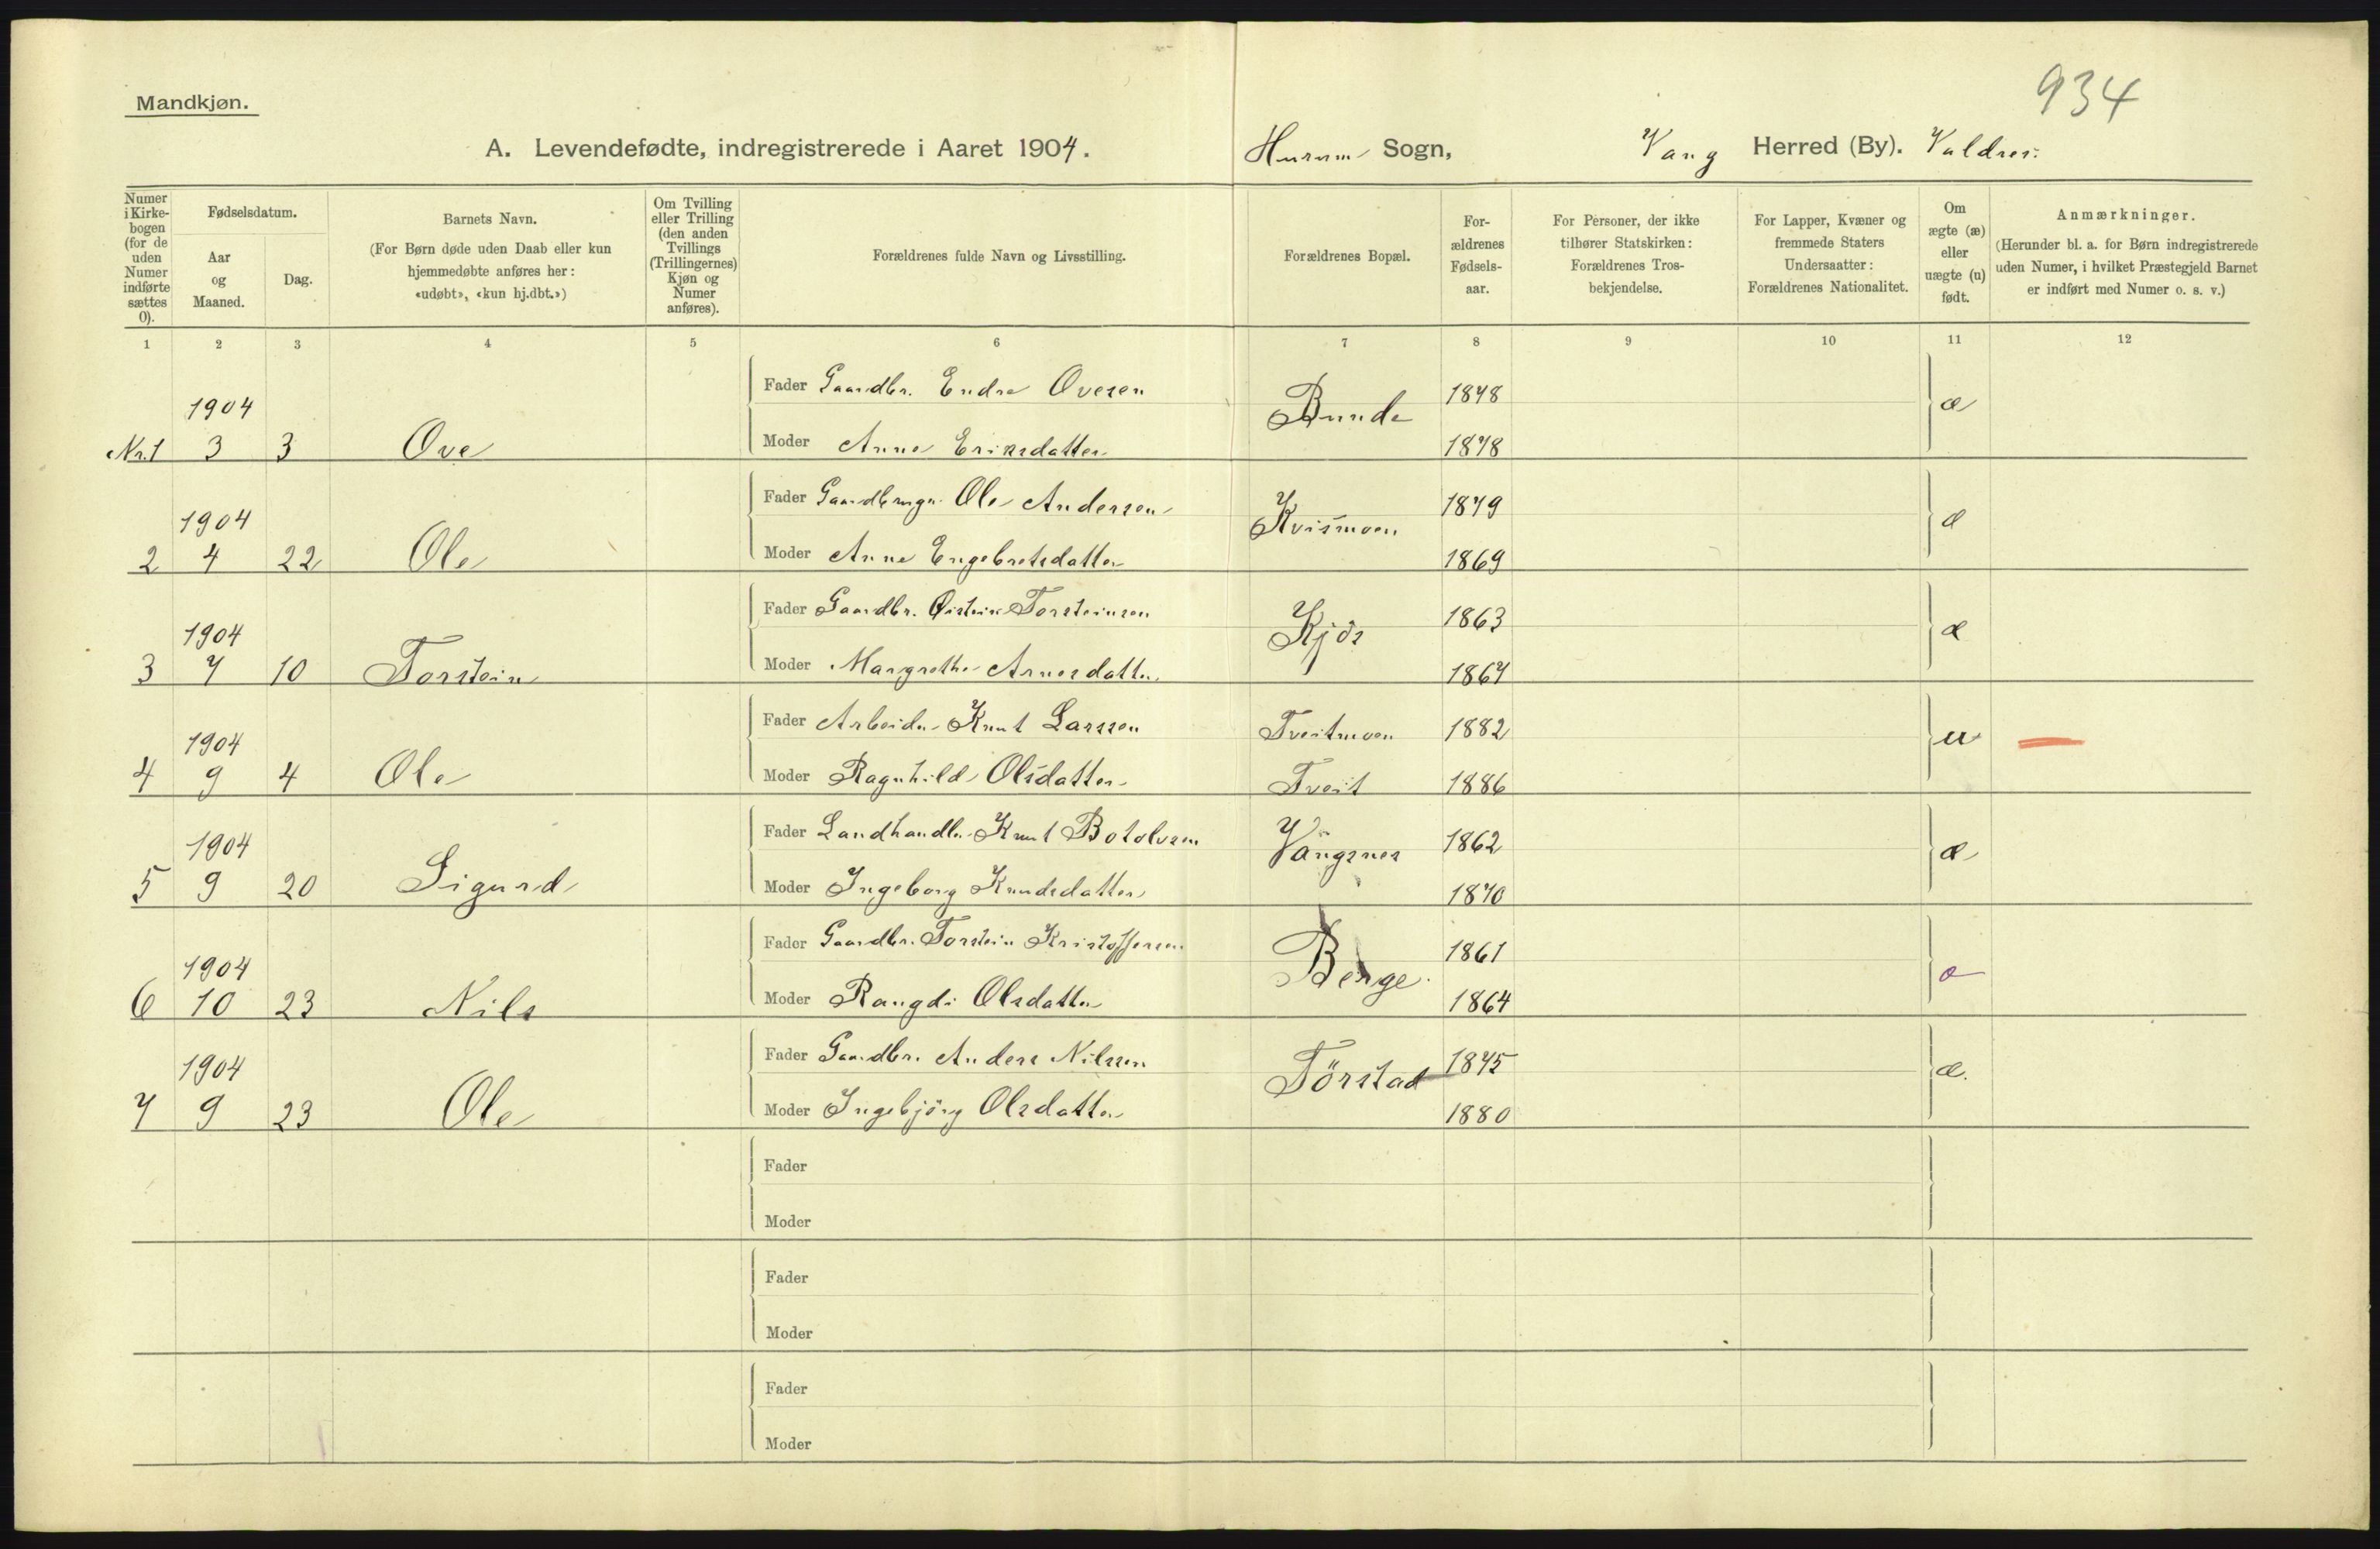 934
Mandkjøn.
A. Levendefødte, indregistrerede i Aaret 1904. Hurum Sogn, Vang Herred (By). Valdres.
Numer i Kirkebogen (for de uden Numer indførte sættes 0).
Fødselsdatum.
Aar og Maaned.
Dag.
Barnets Navn.
(For Børn døde uden Daab eller kun
hjemmedøbte anføres her:
«udøbt», «kun hj.dbt.»)
Om Tvilling
eller Trilling
(den anden
Tvillings
(Trillingernes)
Kjøn og
Numer
anføres).
Forældrenes fulde Navn og Livsstilling.
Forældrenes Bopæl.
For-
ældrenes
Fødsels-
aar.
For Personer, der ikke
tilhører Statskirken:
Forældrenes Tros-
bekjendelse.
For Lapper, Kvæner og
fremmede Staters
Undersaatter:
Forældrenes Nationalitet.
Om
ægte (æ)
eller
uægte (u)
født.
Anmærkninger.
(Herunder bl. a. for Børn indregistrerede
uden Numer, i hvilket Præstegjeld Barnet
er indført med Numer o. s. v.)
1 2 3 4 5 6 7 8 9 10 11 12
1904 Fader Gaardbr. Endre Ovesen Bunde 1848 æ
Nr. 1 3 3 Ove Moder Anne Eriksdatter 1878
1904 Fader Gaardbruger Ole Andersen Kvismoen 1879 æ
2 4 22 Ole Moder Anne Engebretsdatter 1869
1904 Fader Gaardbr. Øistein Torsteinsen Kjös 1863 æ
3 7 10 Torstein Moder Margrethe Arnesdatter 1867
1904 Fader Arbeider Knut Larssen Tveitmoen 1882 u
4 9 4 Ole Moder Ragnhild Olsdatter Tveit 1886
1904 Fader Landhandler Knut Botolvsen Vangsnes 1862 æ
5 9 20 Sigurd Moder Ingeborg Knudsdatter 1870
1904 Fader Gaardbr. Torstein Kristoffersen Berge 1861
6 10 23 Nils Moder Rangdi Olsdatter 1864
1904 Fader Gaardbr. Anders Nilssen Törstad 1875 æ.
7 9 23 Ole Moder Ingebjörg Olsdatter 1880
Fader
Moder
Fader
Moder
Fader
Moder